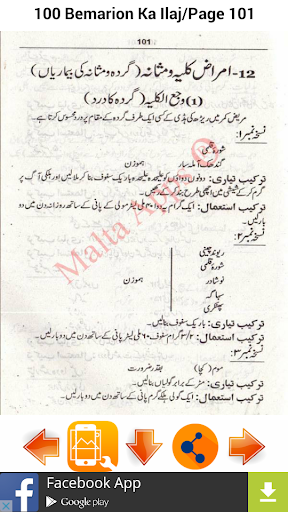 100 Bemarion Ka Ilaj/Page 101
101
12-امراض کلیہ و مثانہ (گردہ و مثانہ کی بیماریاں)
(1) وجع الکلیہ (گردہ کا درد)
مریض کمر میں ریڑھ کی ہڈی کے کسی ایک طرف گردہ کے مقام پر درد محسوس کرتا ہے۔
نسخہ نمبر1:
شورہ قلمی
گندھک آملہ سار ہموزن
ترکیب تیاری: دونوں دواؤں کو علیحدہ علیحدہ باریک سفوف بنا کر ملا لیں اور ہلکی آگ پر
گرم کر کے شیشی میں اچھی طرح بند کر کے رکھیں۔
ترکیب استعمال: ایک گرام یہ دوا ۲۰ ملی لیٹر مولی کے پانی کے ساتھ روزانہ دن میں دو
بار لیں۔
نسخہ نمبر2:
ریوند چینی
شورہ قلمی
نوشادر ہموزن
سہاگہ
پھٹکری
ترکیب تیاری: باریک سفوف بنالیں۔
ترکیب استعمال: ۲/۳ گرام سفوف ۶۰ ملی لیٹر پانی کے ساتھ دن میں دو بار لیں۔
نسخہ نمبر3:
موم (کچا) بقدر ضرورت
ترکیب تیاری: مٹر کے برابر گولیاں بنالیں۔
ترکیب استعمال: ایک گولی ہلکے گرم پانی کے ساتھ دن میں دو بار لیں۔
Malta Apps
Facebook App
Google play